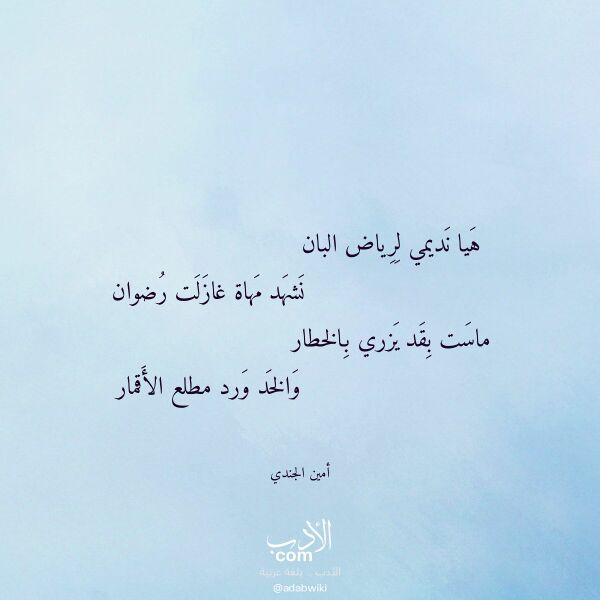 هَيا نَديمي لِرِياض البان
نَشهَد مَهاة غازَلَت رُضوان
ماسَت بِقَد يَزري بِالخطار
وَالخَد وَرد مطلع الأَقمار
أمين الجندي
الأدب
com
الأدب .. بلغة عربية
@adabwiki